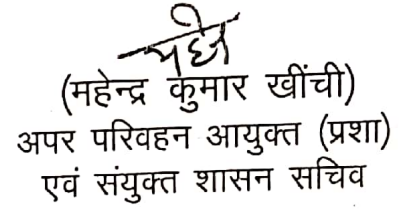 (महेन्द्र कुमार खींची)
अपर परिवहन आयुक्त (प्रशा)
एवं संयुक्त शासन सचिव